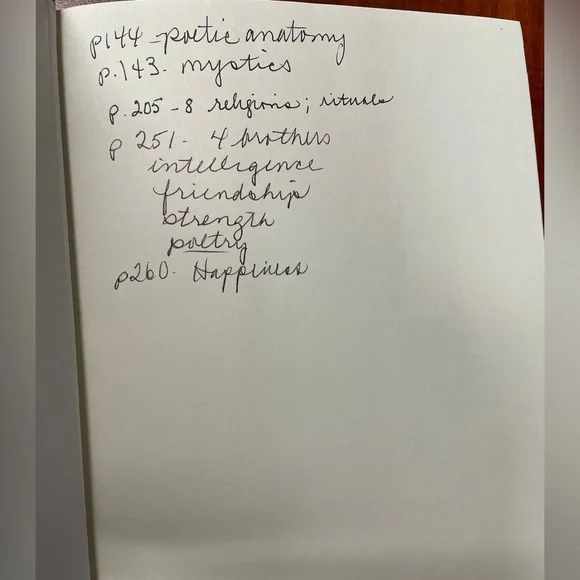 p144 - poetic anatomy
p.143 - mystics
p. 205 - 8 religions; rituals
p 251 - 4 brothers
intelligence
friendship
strength
poetry
p260 - Happiness